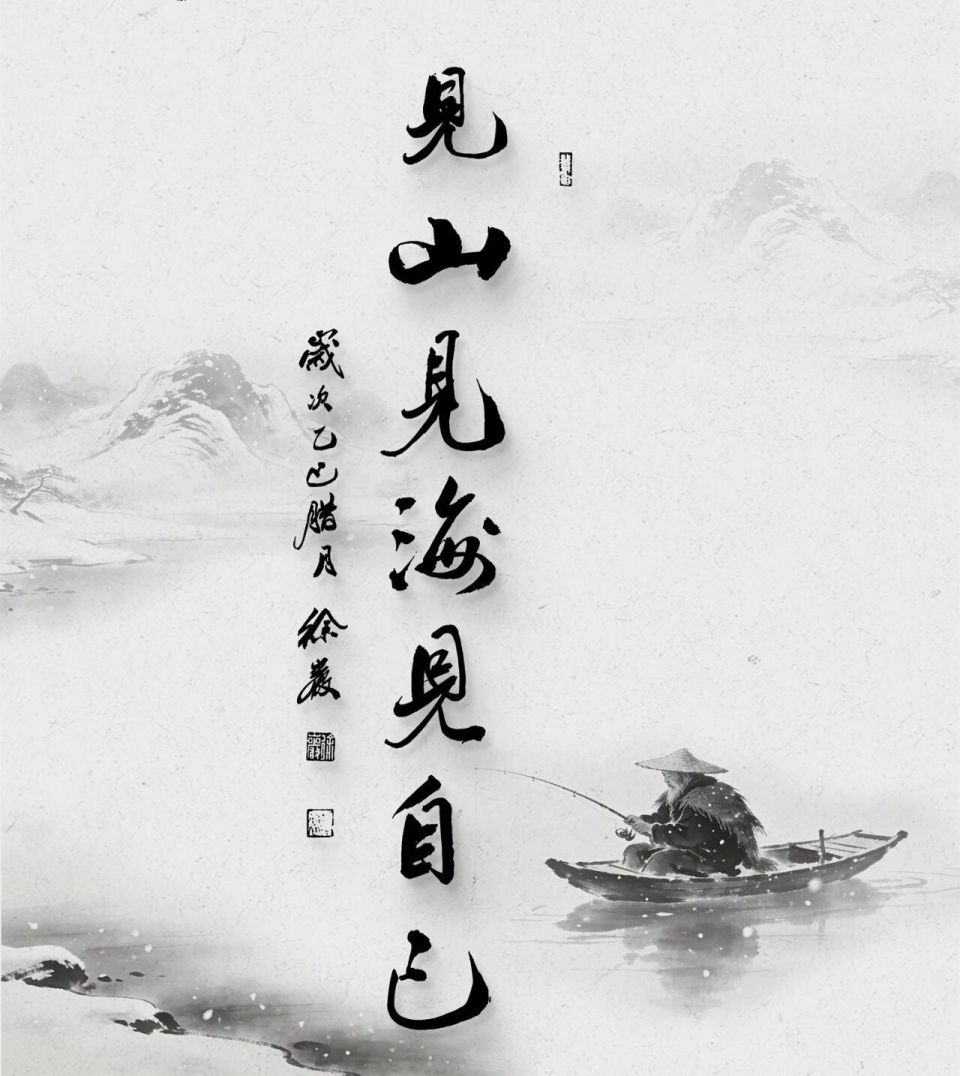 見山見海見自己
歲次乙巳腊月 徐嚴